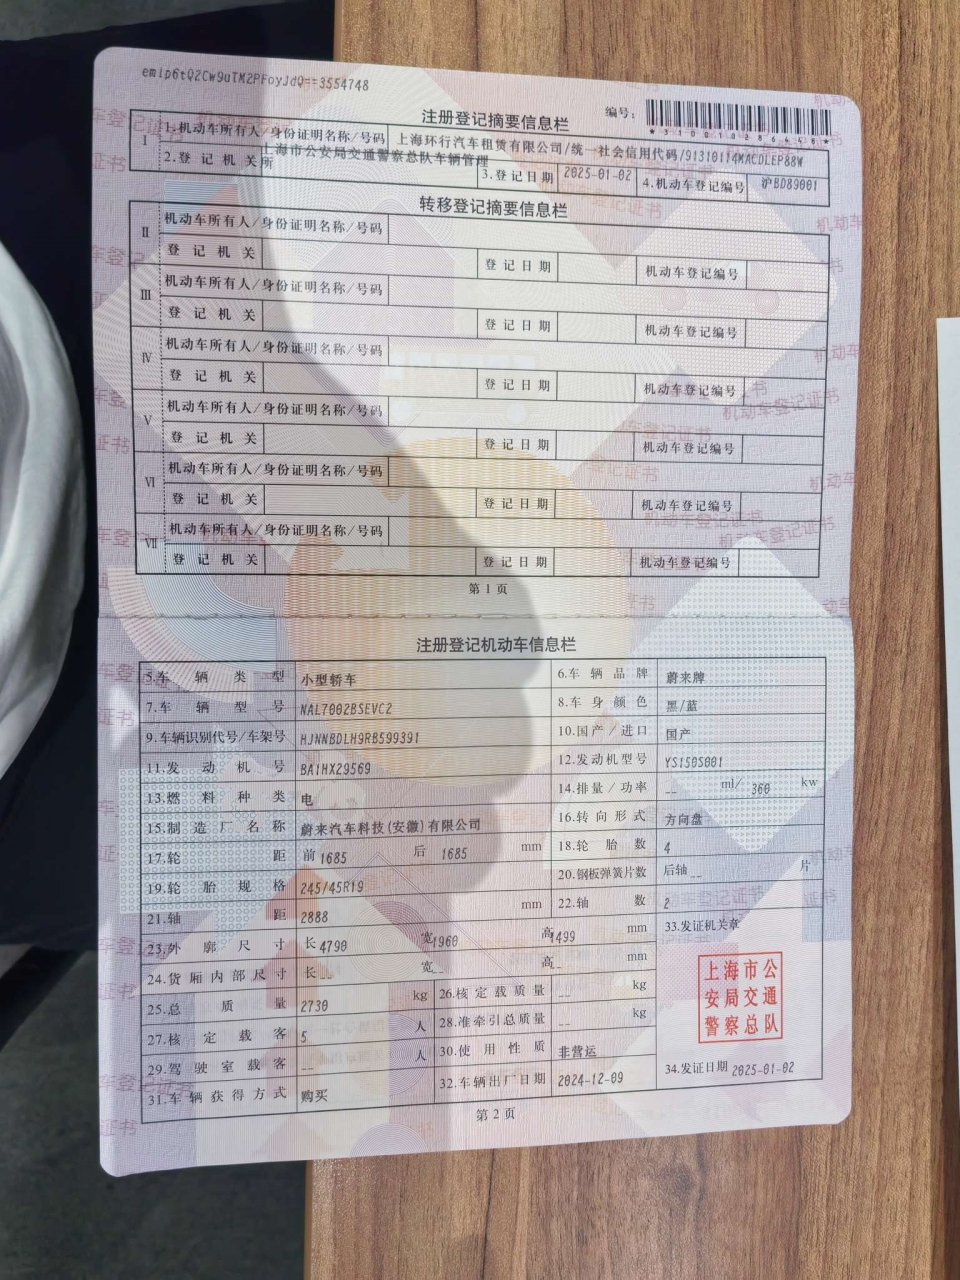 emip6tQ2Cw9uTM2PFoyJdQ==3554748
编号：
*310010286448*
注册登记摘要信息栏
I 1.机动车所有人/身份证明名称/号码 上海环行汽车租赁有限公司/统一社会信用代码/91310114MACDLEP88W
2.登记机关 上海市公安局交通警察总队车辆管理所 3.登记日期 2025-01-02 4.机动车登记编号 沪BD89001
转移登记摘要信息栏
II 机动车所有人/身份证明名称/号码
登记机关 登记日期 机动车登记编号
III 机动车所有人/身份证明名称/号码
登记机关 登记日期 机动车登记编号
IV 机动车所有人/身份证明名称/号码
登记机关 登记日期 机动车登记编号
V 机动车所有人/身份证明名称/号码
登记机关 登记日期 机动车登记编号
VI 机动车所有人/身份证明名称/号码
登记机关 登记日期 机动车登记编号
VII 机动车所有人/身份证明名称/号码
登记机关 登记日期 机动车登记编号
第1页
注册登记机动车信息栏
5.车辆类型 小型轿车 6.车辆品牌 蔚来牌
7.车辆型号 NAL7002BSEVC2 8.车身颜色 黑/蓝
9.车辆识别代号/车架号 HJNNBDLH9RB599391 10.国产/进口 国产
11.发动机号 BA1HX29569 12.发动机型号 YS150S001
13.燃料种类 电 14.排量/功率 -- ml/ 360 kw
15.制造厂名称 蔚来汽车科技(安徽)有限公司 16.转向形式 方向盘
17.轮距 前 1685 后 1685 mm 18.轮胎数 4
19.轮胎规格 245/45R19 20.钢板弹簧片数 后轴 -- 片
21.轴距 2888 mm 22.轴数 2
23.外廓尺寸 长 4790 宽 1960 高 1499 mm 33.发证机关章
24.货厢内部尺寸 长 -- 宽 -- 高 -- mm
上海市公安局交通警察总队
25.总质量 2730 kg 26.核定载质量 -- kg
27.核定载客 5 人 28.准牵引总质量 -- kg
29.驾驶室载客 -- 人 30.使用性质 非营运 34.发证日期 2025-01-02
31.车辆获得方式 购买 32.车辆出厂日期 2024-12-09
第2页